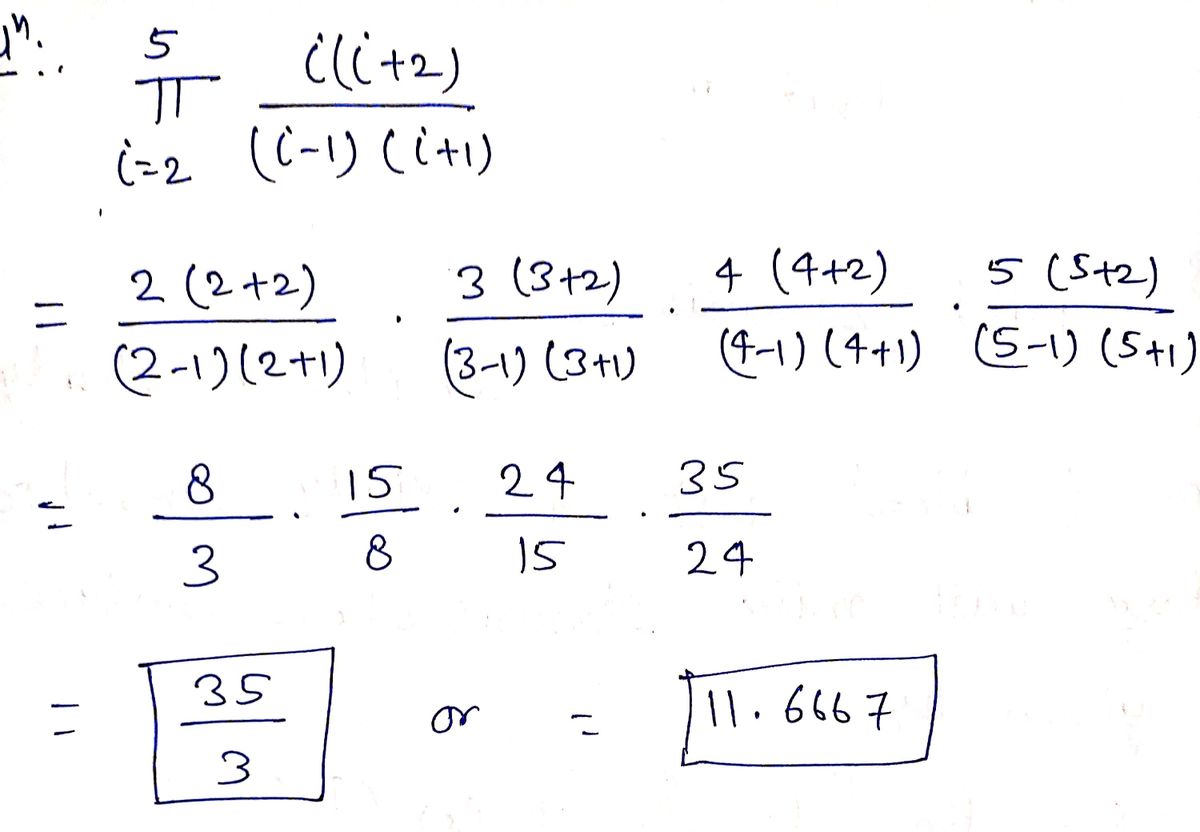 5
∏ i(i+2) / (i-1) (i+1)
i=2
= 2 (2+2) / (2-1)(2+1) . 3 (3+2) / (3-1) (3+1) . 4 (4+2) / (4-1) (4+1) . 5 (5+2) / (5-1) (5+1)
= 8/3 . 15/8 . 24/15 . 35/24
= 35/3 or = 11.6667